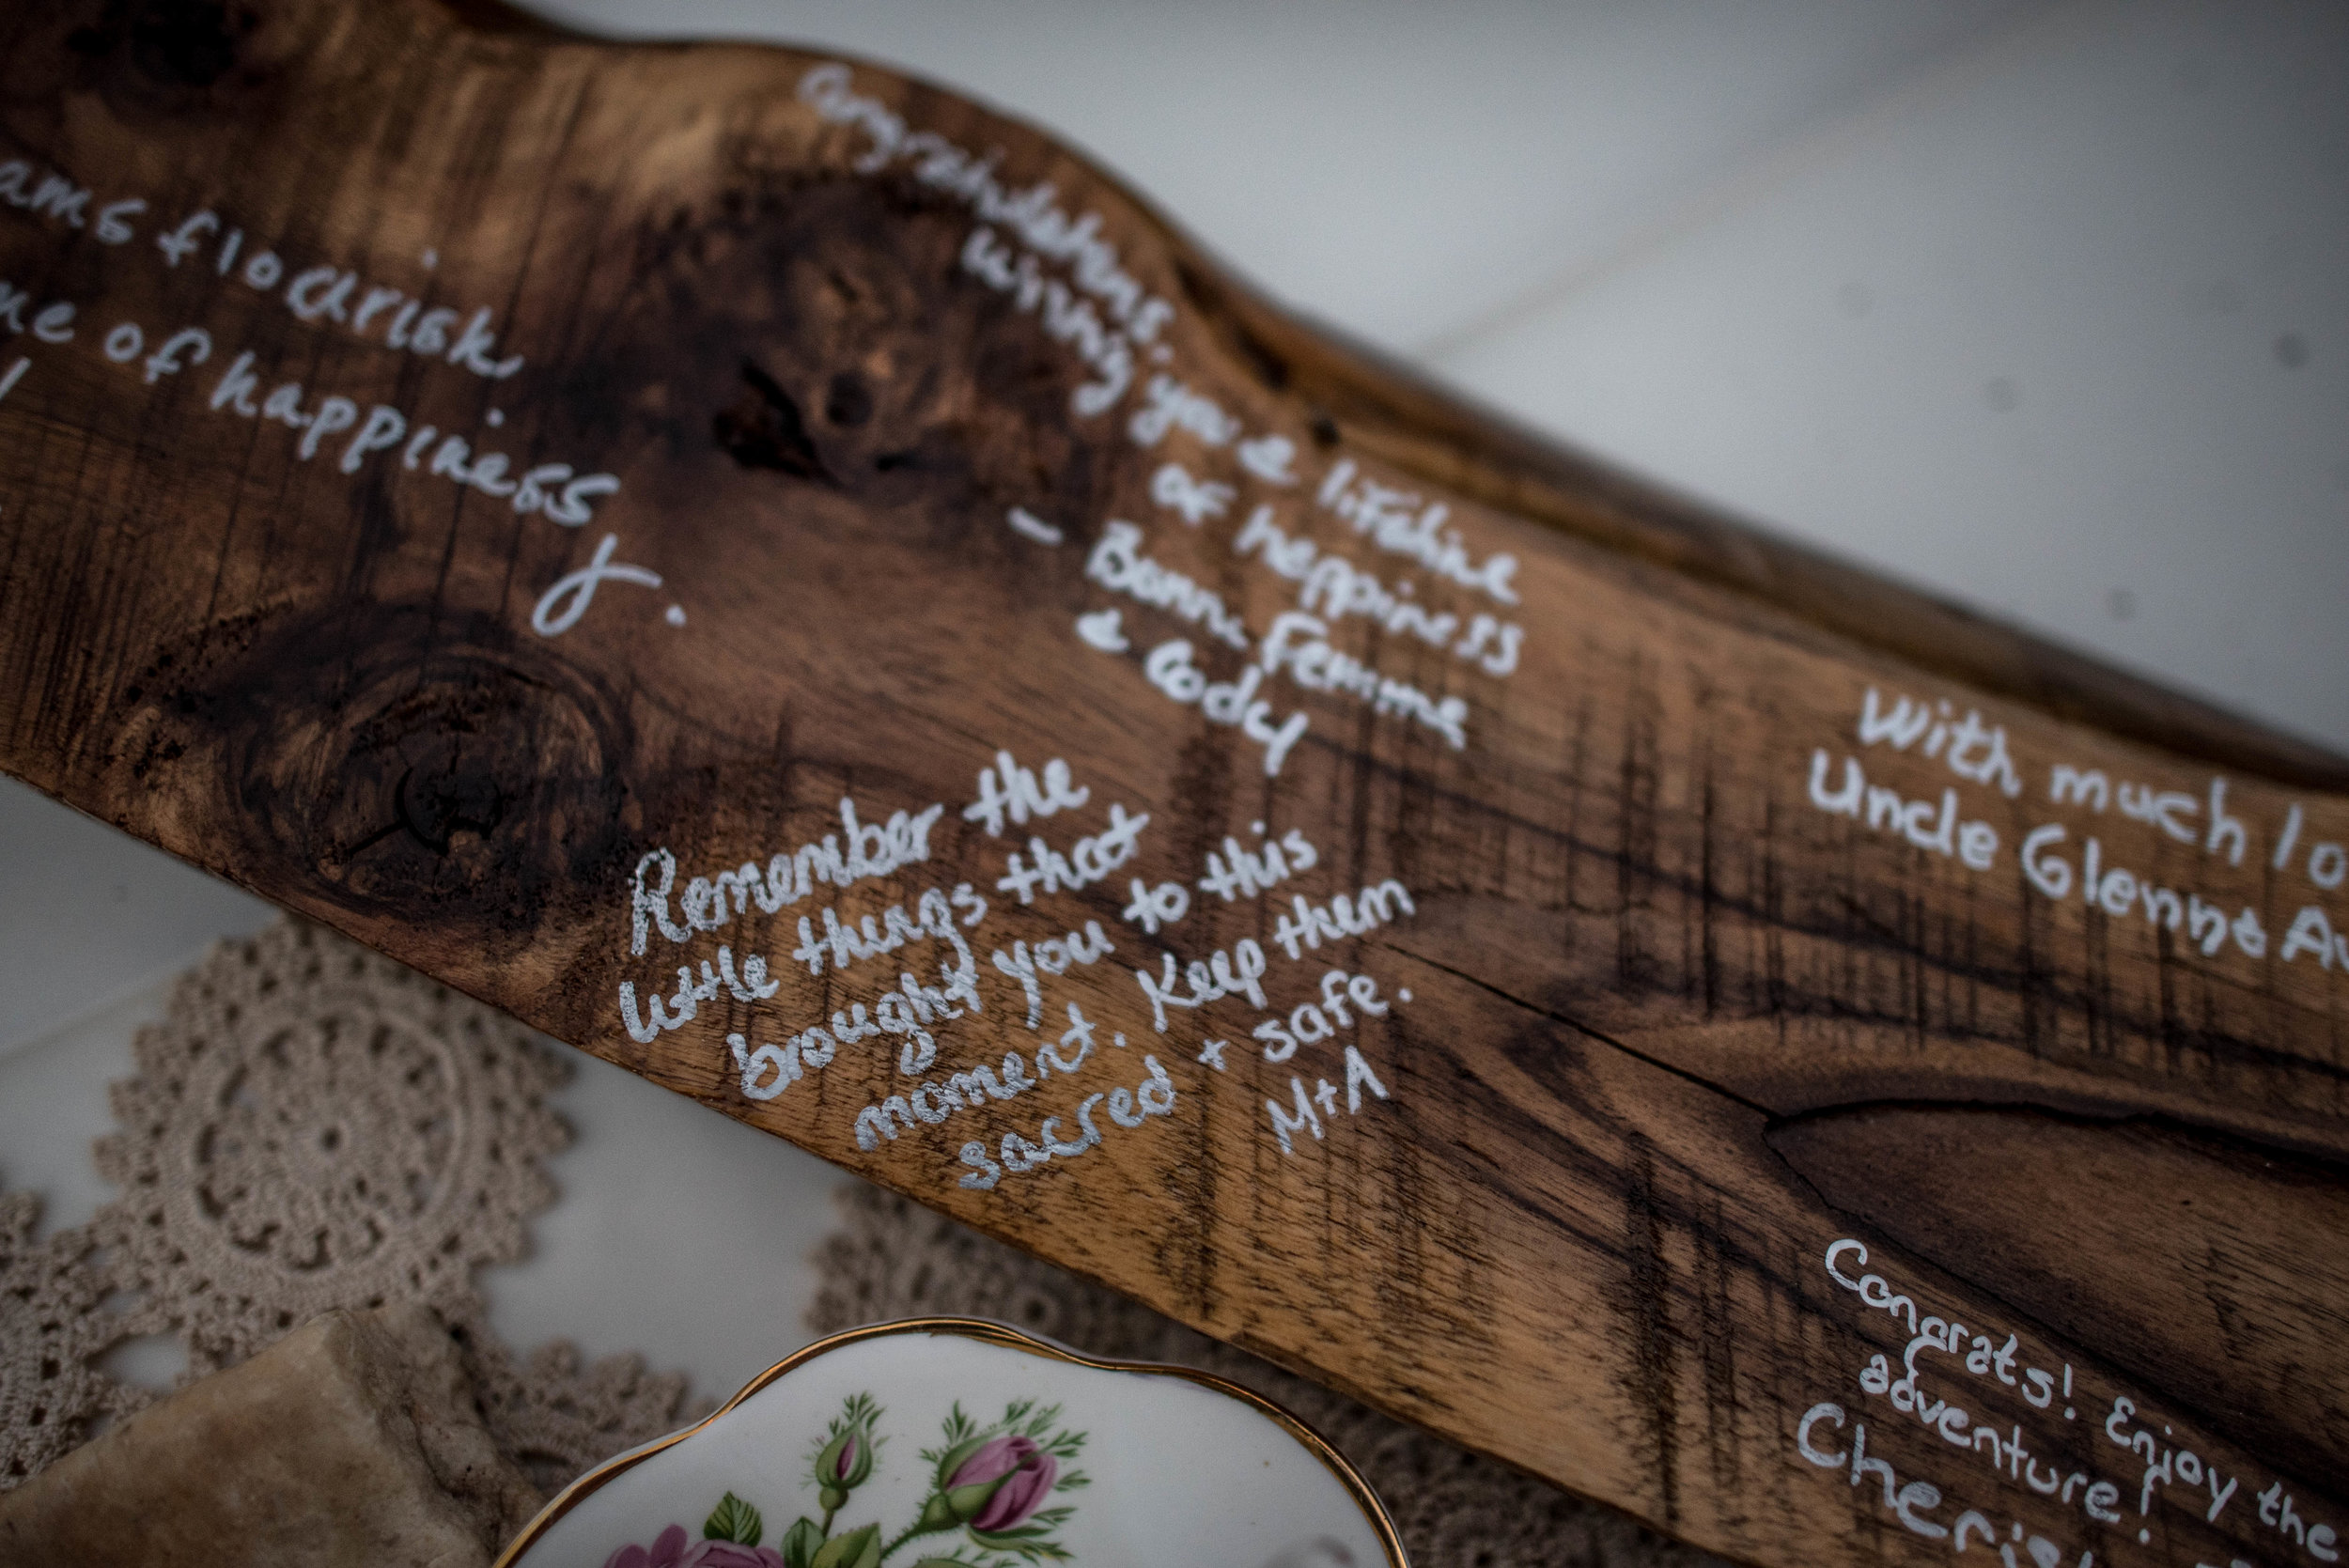 ams flourish
me of happiness
J.
Congratulations.
wishing you a lifetime
of happiness
- Bonne Femme
& Cody
Remember the
little things that
brought you to this
moment. Keep them
sacred + safe.
M+A
With much lo
Uncle Glenn & Au
Congrats! Enjoy the
adventure!
Cheris